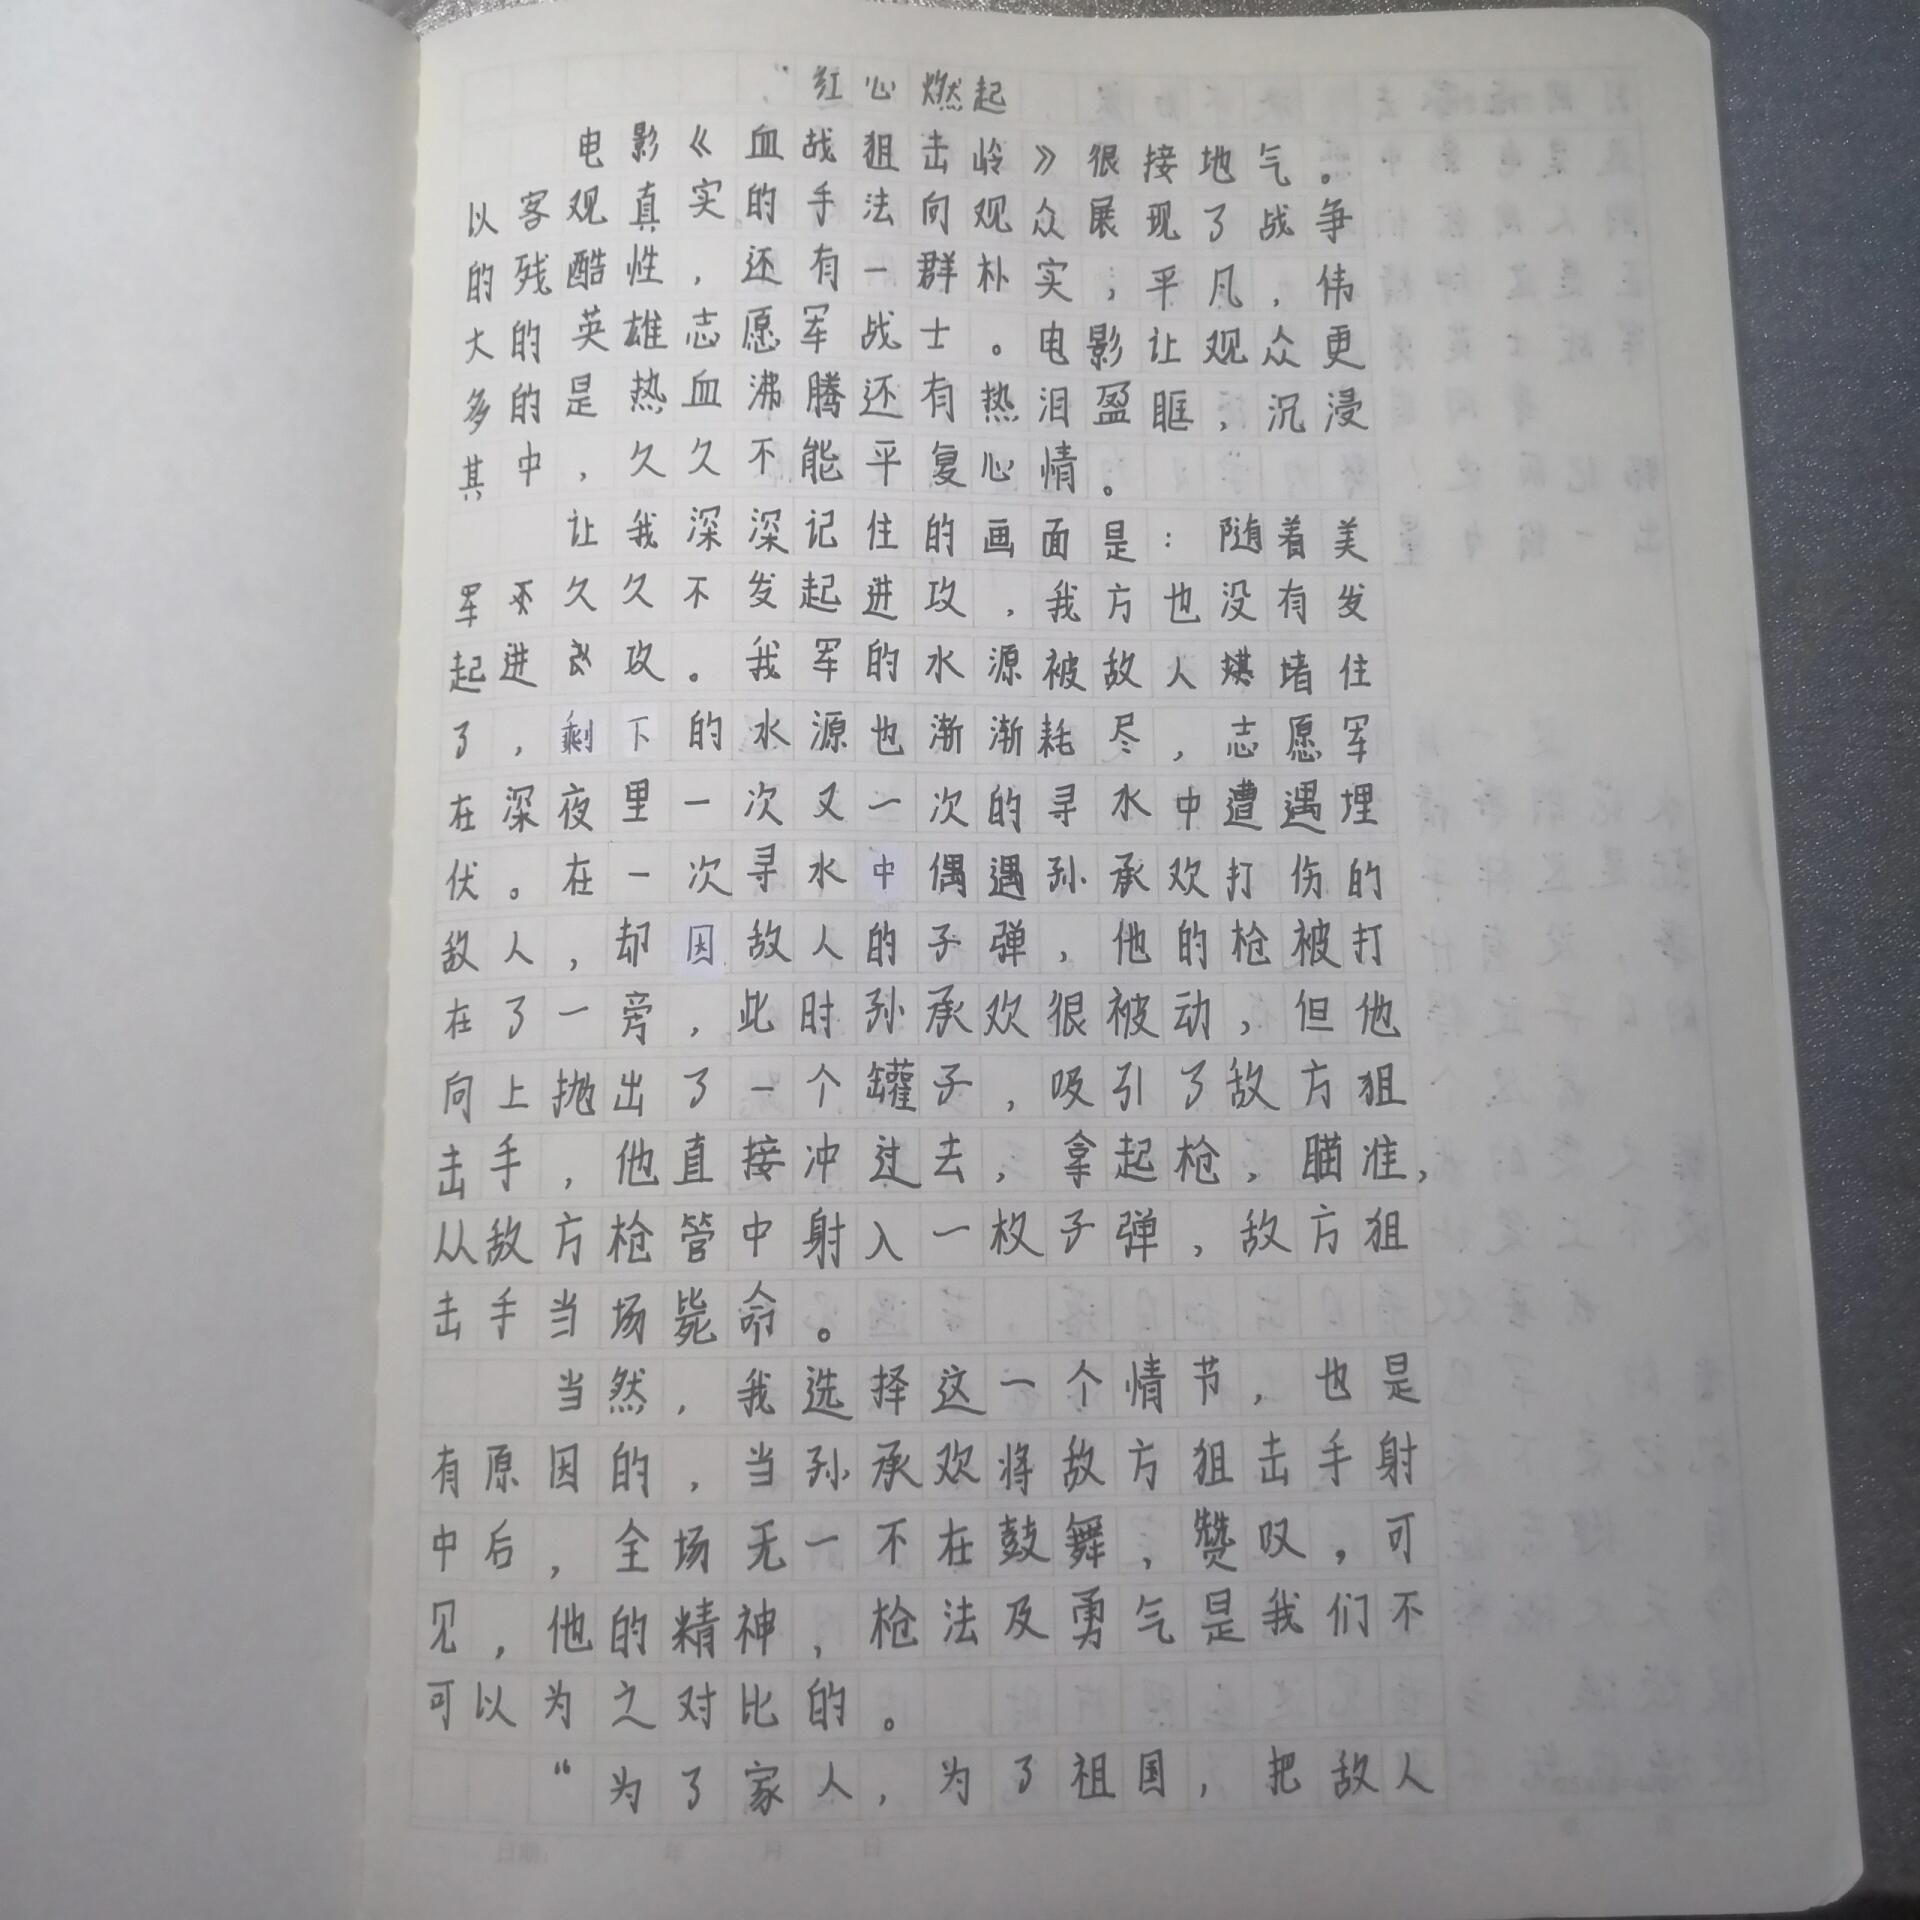 “红心燃起
电影《血战狙击岭》很接地气。
以客观真实的手法向观众展现了战争
的残酷性，还有一群朴实；平凡，伟
大的英雄志愿军战士。电影让观众更
多的是热血沸腾还有热泪盈眶，沉浸
其中，久久不能平复心情。
让我深深记住的画面是：随着美
军久久不发起进攻，我方也没有发
起进攻。我军的水源被敌人堵住
了，剩下的水源也渐渐耗尽，志愿军
在深夜里一次又一次的寻水中遭遇埋
伏。在一次寻水中偶遇孙承欢打伤的
敌人，却因敌人的子弹，他的枪被打
在了一旁，此时孙承欢很被动，但他
向上抛出了一个罐子，吸引了敌方狙
击手，他直接冲过去，拿起枪，瞄准，
从敌方枪管中射入一枚子弹，敌方狙
击手当场毙命。
当然，我选择这一个情节，也是
有原因的，当孙承欢将敌方狙击手射
中后，全场无一不在鼓舞，赞叹，可
见，他的精神，枪法及勇气是我们不
可以为之对比的。
“为了家人，为了祖国，把敌人